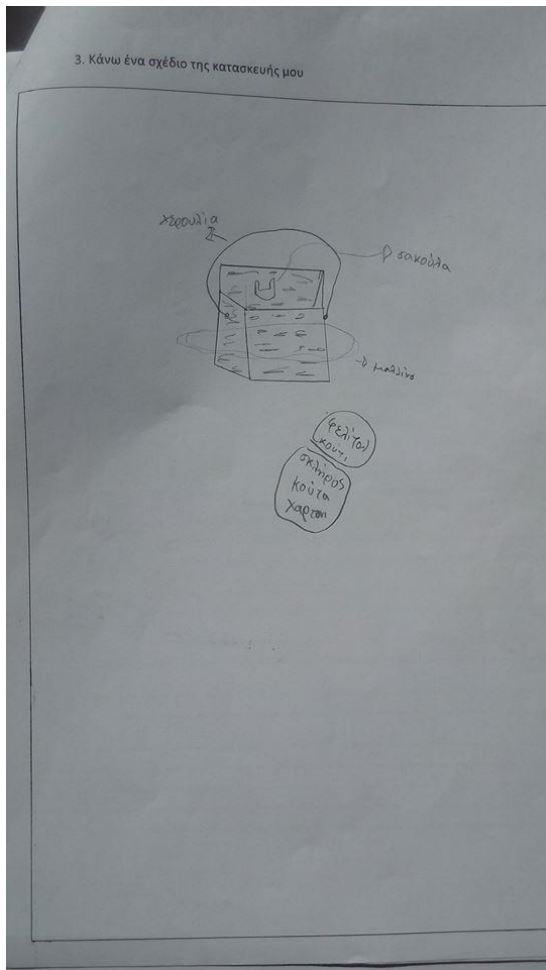 3. Κάνω ένα σχέδιο της κατασκευής μου
χερουλια
σακούλα
μαλλινο
φελιζολ
κουτι
σκλήρος
κούτα
χαρτον